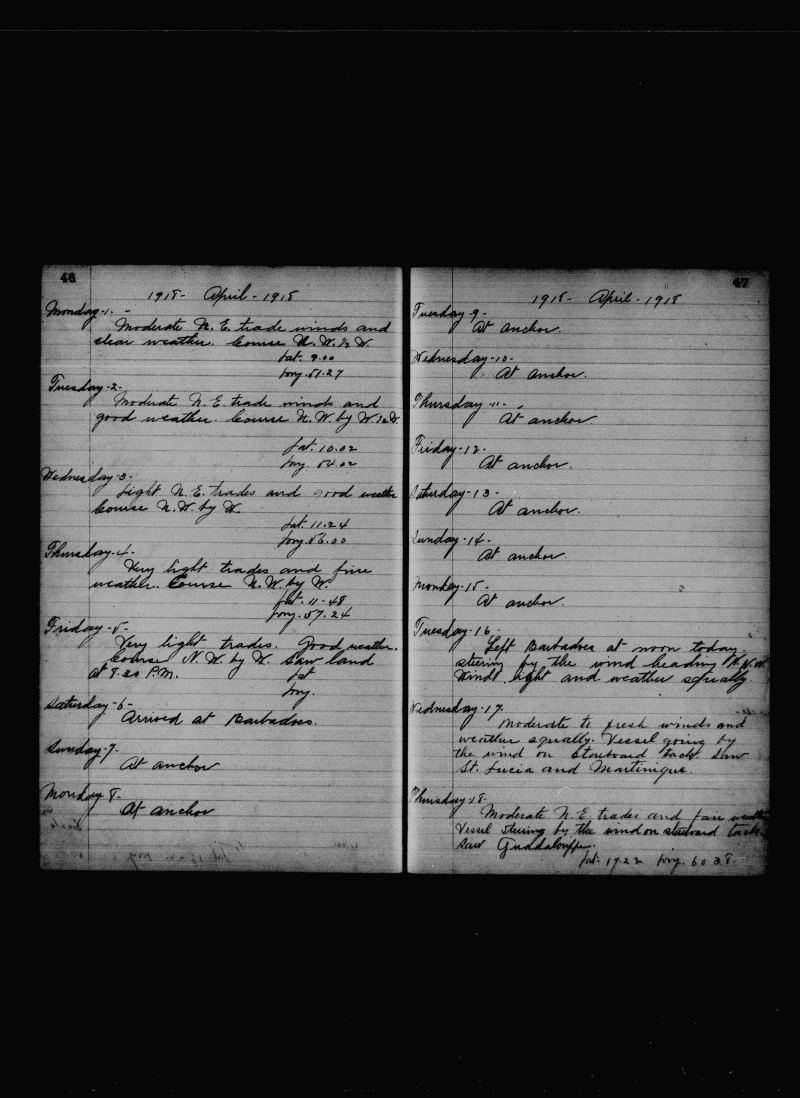 46
1918- April - 1918
Monday-1.-
Moderate N. E. trade winds and
clear weather. Course N. W. ½ W.
Lat. 9.00
Long. 51.27
Tuesday-2-
Moderate N. E. trade winds and
good weather. Course N. W. by W. ½ W.
Lat. 10.02
Long. 54.02
Wednesday-3-
Light N. E. trades and good weather
Course N. W. by W.
Lat. 11.24
Long. 56.00
Thursday-4-
Very light trades and fine
weather. Course N. W. by W.
Lat. 11-48
Long. 57.24
Friday-5-
Very light trades. Good weather.
Course N. W. by W. Saw land
at 9.20 P.M. Lat
Long.
Saturday-6-
Arrived at Barbados.
Sunday-7.
At anchor
Monday 8-
At anchor
47
1918- April - 1918
Tuesday 9-
At anchor.
Wednesday-10-
At anchor.
Thursday-11-
At anchor.
Friday-12-
At anchor.
Saturday-13-
At anchor.
Sunday-14-
At anchor.
Monday-15-
At anchor.
Tuesday-16-
Left Barbados at noon today.
steering by the wind heading N. N. W.
Winds light and weather squally
Wednesday-17-
Moderate to fresh winds and
weather squally. Vessel going by
the wind on Starboard tack Saw
St. Lucia and Martinique.
Thursday-18-
Moderate N. E. trades and fair weather
Vessel steering by the wind on starboard tack.
Saw Guadaloupe.
Lat. 17.22 Long. 60 38.